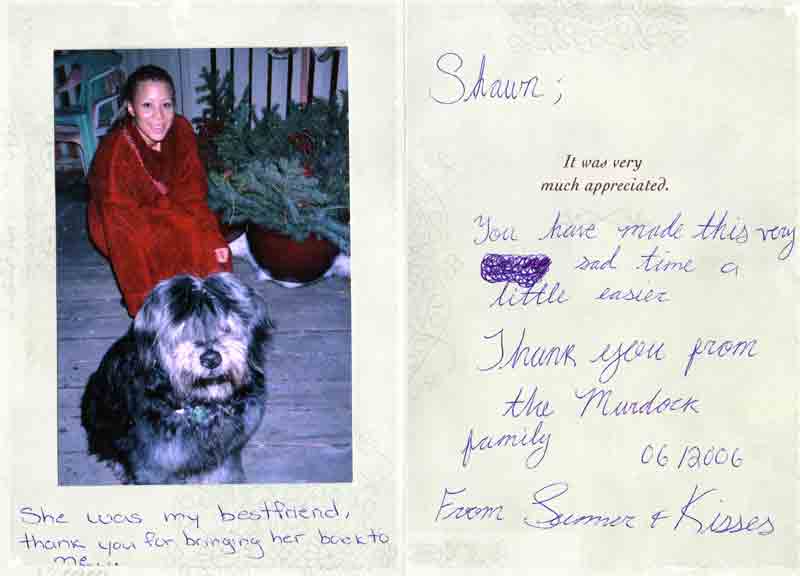 She was my bestfriend,
thank you for bringing her back to
me...
Shawn;
It was very
much appreciated.
You have made this very
sad time a
little easier
Thank you from
the Murdock
family
06/2006
From Summer & Kisses